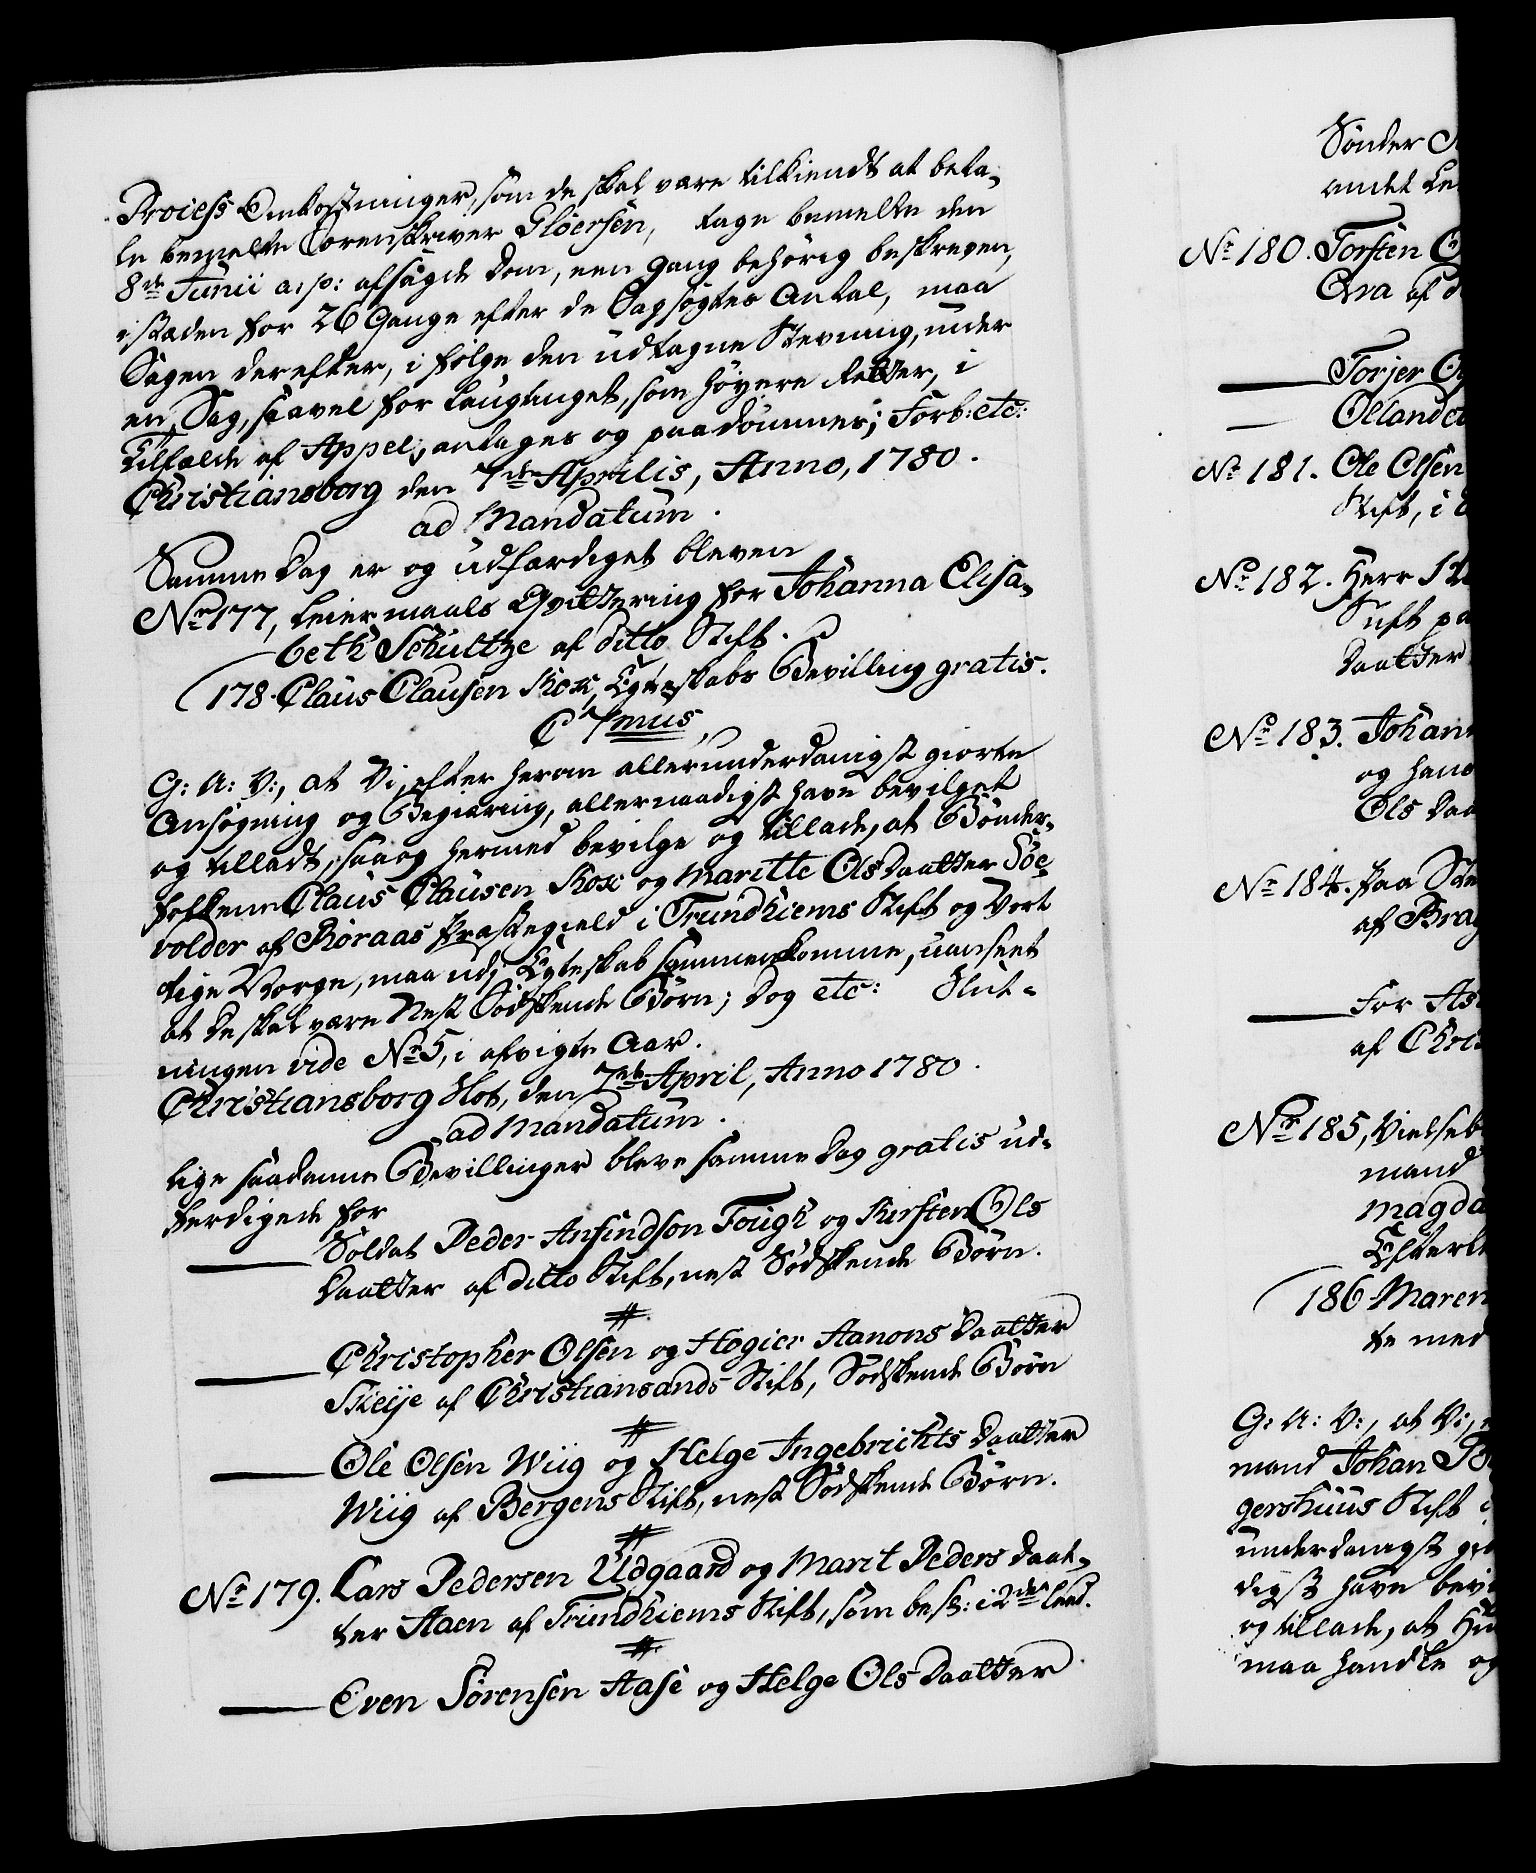 Process Omkostninger, som de skal være tilkiendt at beta-
le bemelte Sorenskriver Gløersen, tage bemelte den
8de Junii a: p: afsagde Dom, een Gang behørig beskreven,
istæden for 26 Gange efter de Sagsøgtes Antal, maa
Sagen derefter, i følge den udtagne Stevning, under
en Sag, saavel for Laugtinget, som høyere Retter, i
Tilfælde af Appel, antages og paadømmes; Forb: etc:
Christiansborg den 7de Aprilis, Anno, 1780.
ad Mandatum.
Samme Dag er og udfærdiget bleven
No 177, Leiermaals Qvittering for Johanna Elisa-
beth Schultze af ditto Stift.
178. Claus Clausen Kox, Egteskabs Bevilling gratis.
C 7mus,
G: A: V:, at Vi, efter herom allerunderdanigst giorte
Ansøgning og Begiæring, allernaadigst have bevilget
og tilladt, saa og hermed bevilge og tillade, at Bønder-
folkene Claus Clausen Kox og Maritte Olsdaatter Søe
volder af Røraas Præstegield i Trundhiems Stift og Vort
Rige Norge, maa udj Egteskab sammenkomme, uanseet
at De skal være Nest Sødskende Børn; Dog etc: Slut-
ningen vide No 5, i afvigte Aar.
Christiansborg Slot, den 7de April, Anno 1780.
ad Mandatum.
Lige saadanne Bevillinger bleve samme Dag gratis ud-
færdigede for
Soldat Peder Anfindson Tough og Kirsten Ols
Daatter af ditto Stift, nest Sødskende Børn.
Christopher Olsen og Hogier Aanons Daatter
Skeije af Christiansands Stift, Sødskende Børn
Ole Olsen Wiig og Helge Ingebrichts Daatter
Wiig af Bergens Stift, nest Sødskende Børn.
No 179. Lars Pedersen Udgaard og Marit Peders Daat-
ter Aaen af Trundhiems Stift, som besk: i 2det Leed.
Even Sørensen Aase og Helge Ols Daatter
Sønder
andet Le
No 180. Torsten
Qva af
Torjer
Ollandet
No 181. Ole Olsen
Stift, i
No 182. Herr
Stift pa
Daatter
No 183. Johan
og hans
Ols Daa
No 184. Paa
af Brag
For
af Chri
No 185, Vielseb
mand
Magda
Efterl
186 Maren
te med
G: A: V:, at Vi,
mand Johan
gershuus Stift
underdanigst gio
digst have bevi
og tillade, at
maa handle og